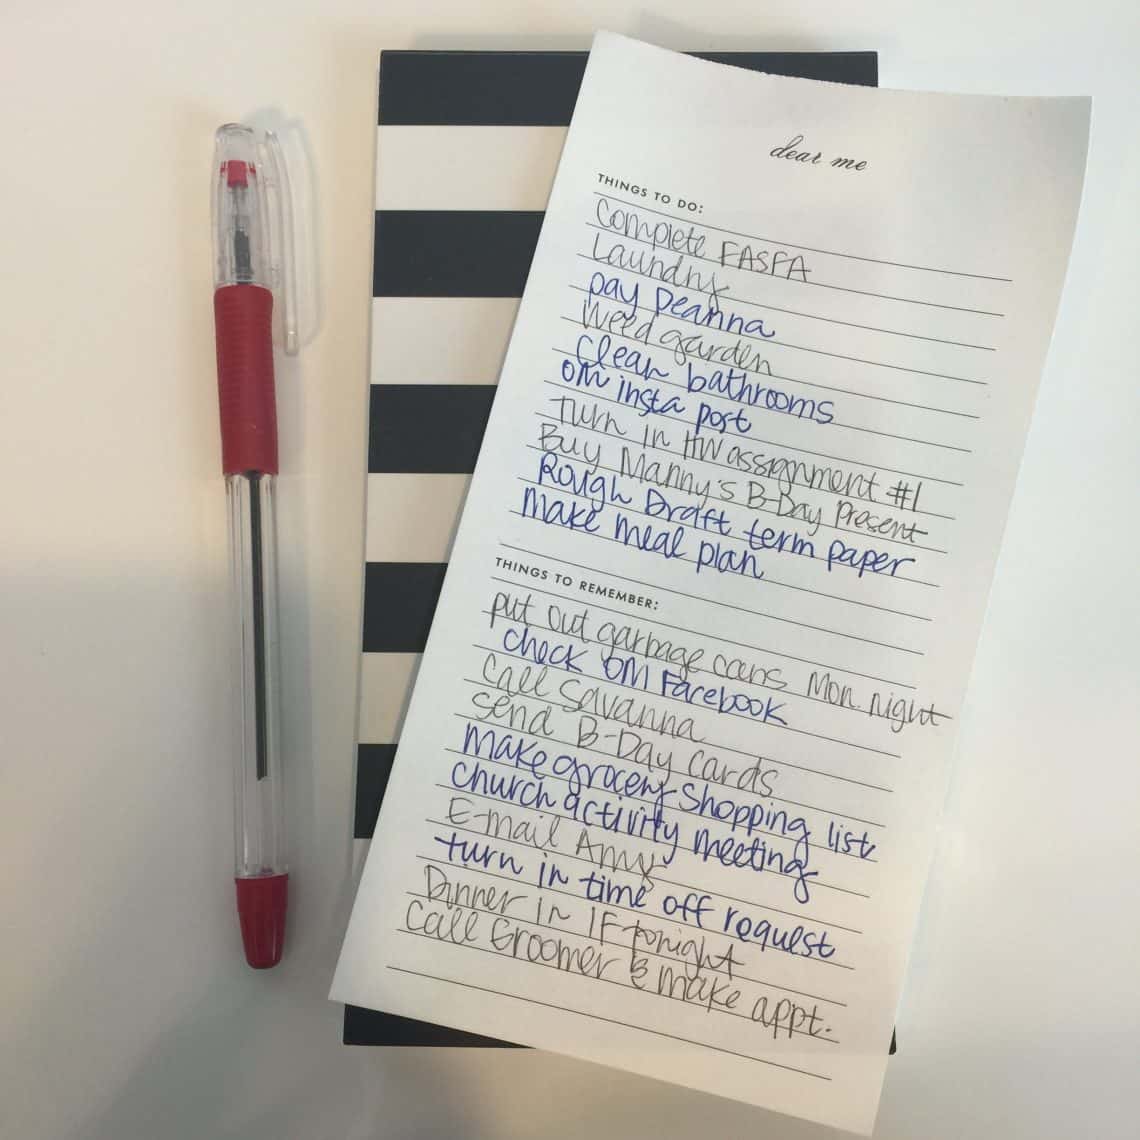 dear me
THINGS TO DO:
Complete FASFA
Laundry
pay Deanna
Weed garden
Clean bathrooms
OM insta post
turn in HW assignment #1
Buy Manny's B-Day Present
Rough Draft term paper
make meal plan
THINGS TO REMEMBER:
put out garbage cans Mon. night
check OM Facebook
Call Savanna
Send B-Day Cards
make grocery shopping list
church activity meeting
E-mail Amy
turn in time off request
Dinner in IF tonight
Call Groomer & make appt.